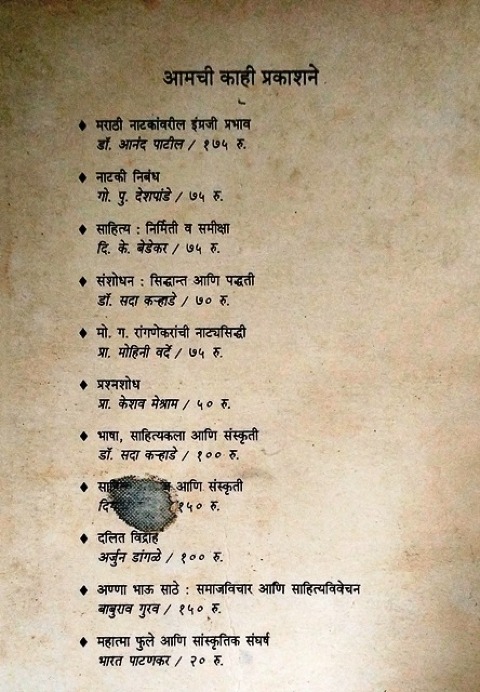 आमची काही प्रकाशने
♦ मराठी नाटकांवरील इंग्रजी प्रभाव
डॉ. आनंद पाटील / १७५ रु.
♦ नाटकी निबंध
गो. पु. देशपांडे / ७५ रु.
♦ साहित्य : निर्मिती व समीक्षा
दि. के. बेडेकर / ७५ रु.
♦ संशोधन : सिद्धान्त आणि पद्धती
डॉ. सदा कऱ्हाडे / ७० रु.
♦ मो. ग. रांगणेकरांची नाट्यसिद्धी
प्रा. मोहिनी वर्दे / ७५ रु.
♦ प्रश्नशोध
प्रा. केशव मेश्राम / ५० रु.
♦ भाषा, साहित्यकला आणि संस्कृती
डॉ. सदा कऱ्हाडे / १०० रु.
♦ आणि संस्कृती
१५० रु.
♦ दलित विद्रोह
अर्जुन डांगळे / १०० रु.
♦ अण्णा भाऊ साठे : समाजविचार आणि साहित्यविवेचन
बाबुराव गुरव / १५० रु.
♦ महात्मा फुले आणि सांस्कृतिक संघर्ष
भारत पाटणकर / २० रु.